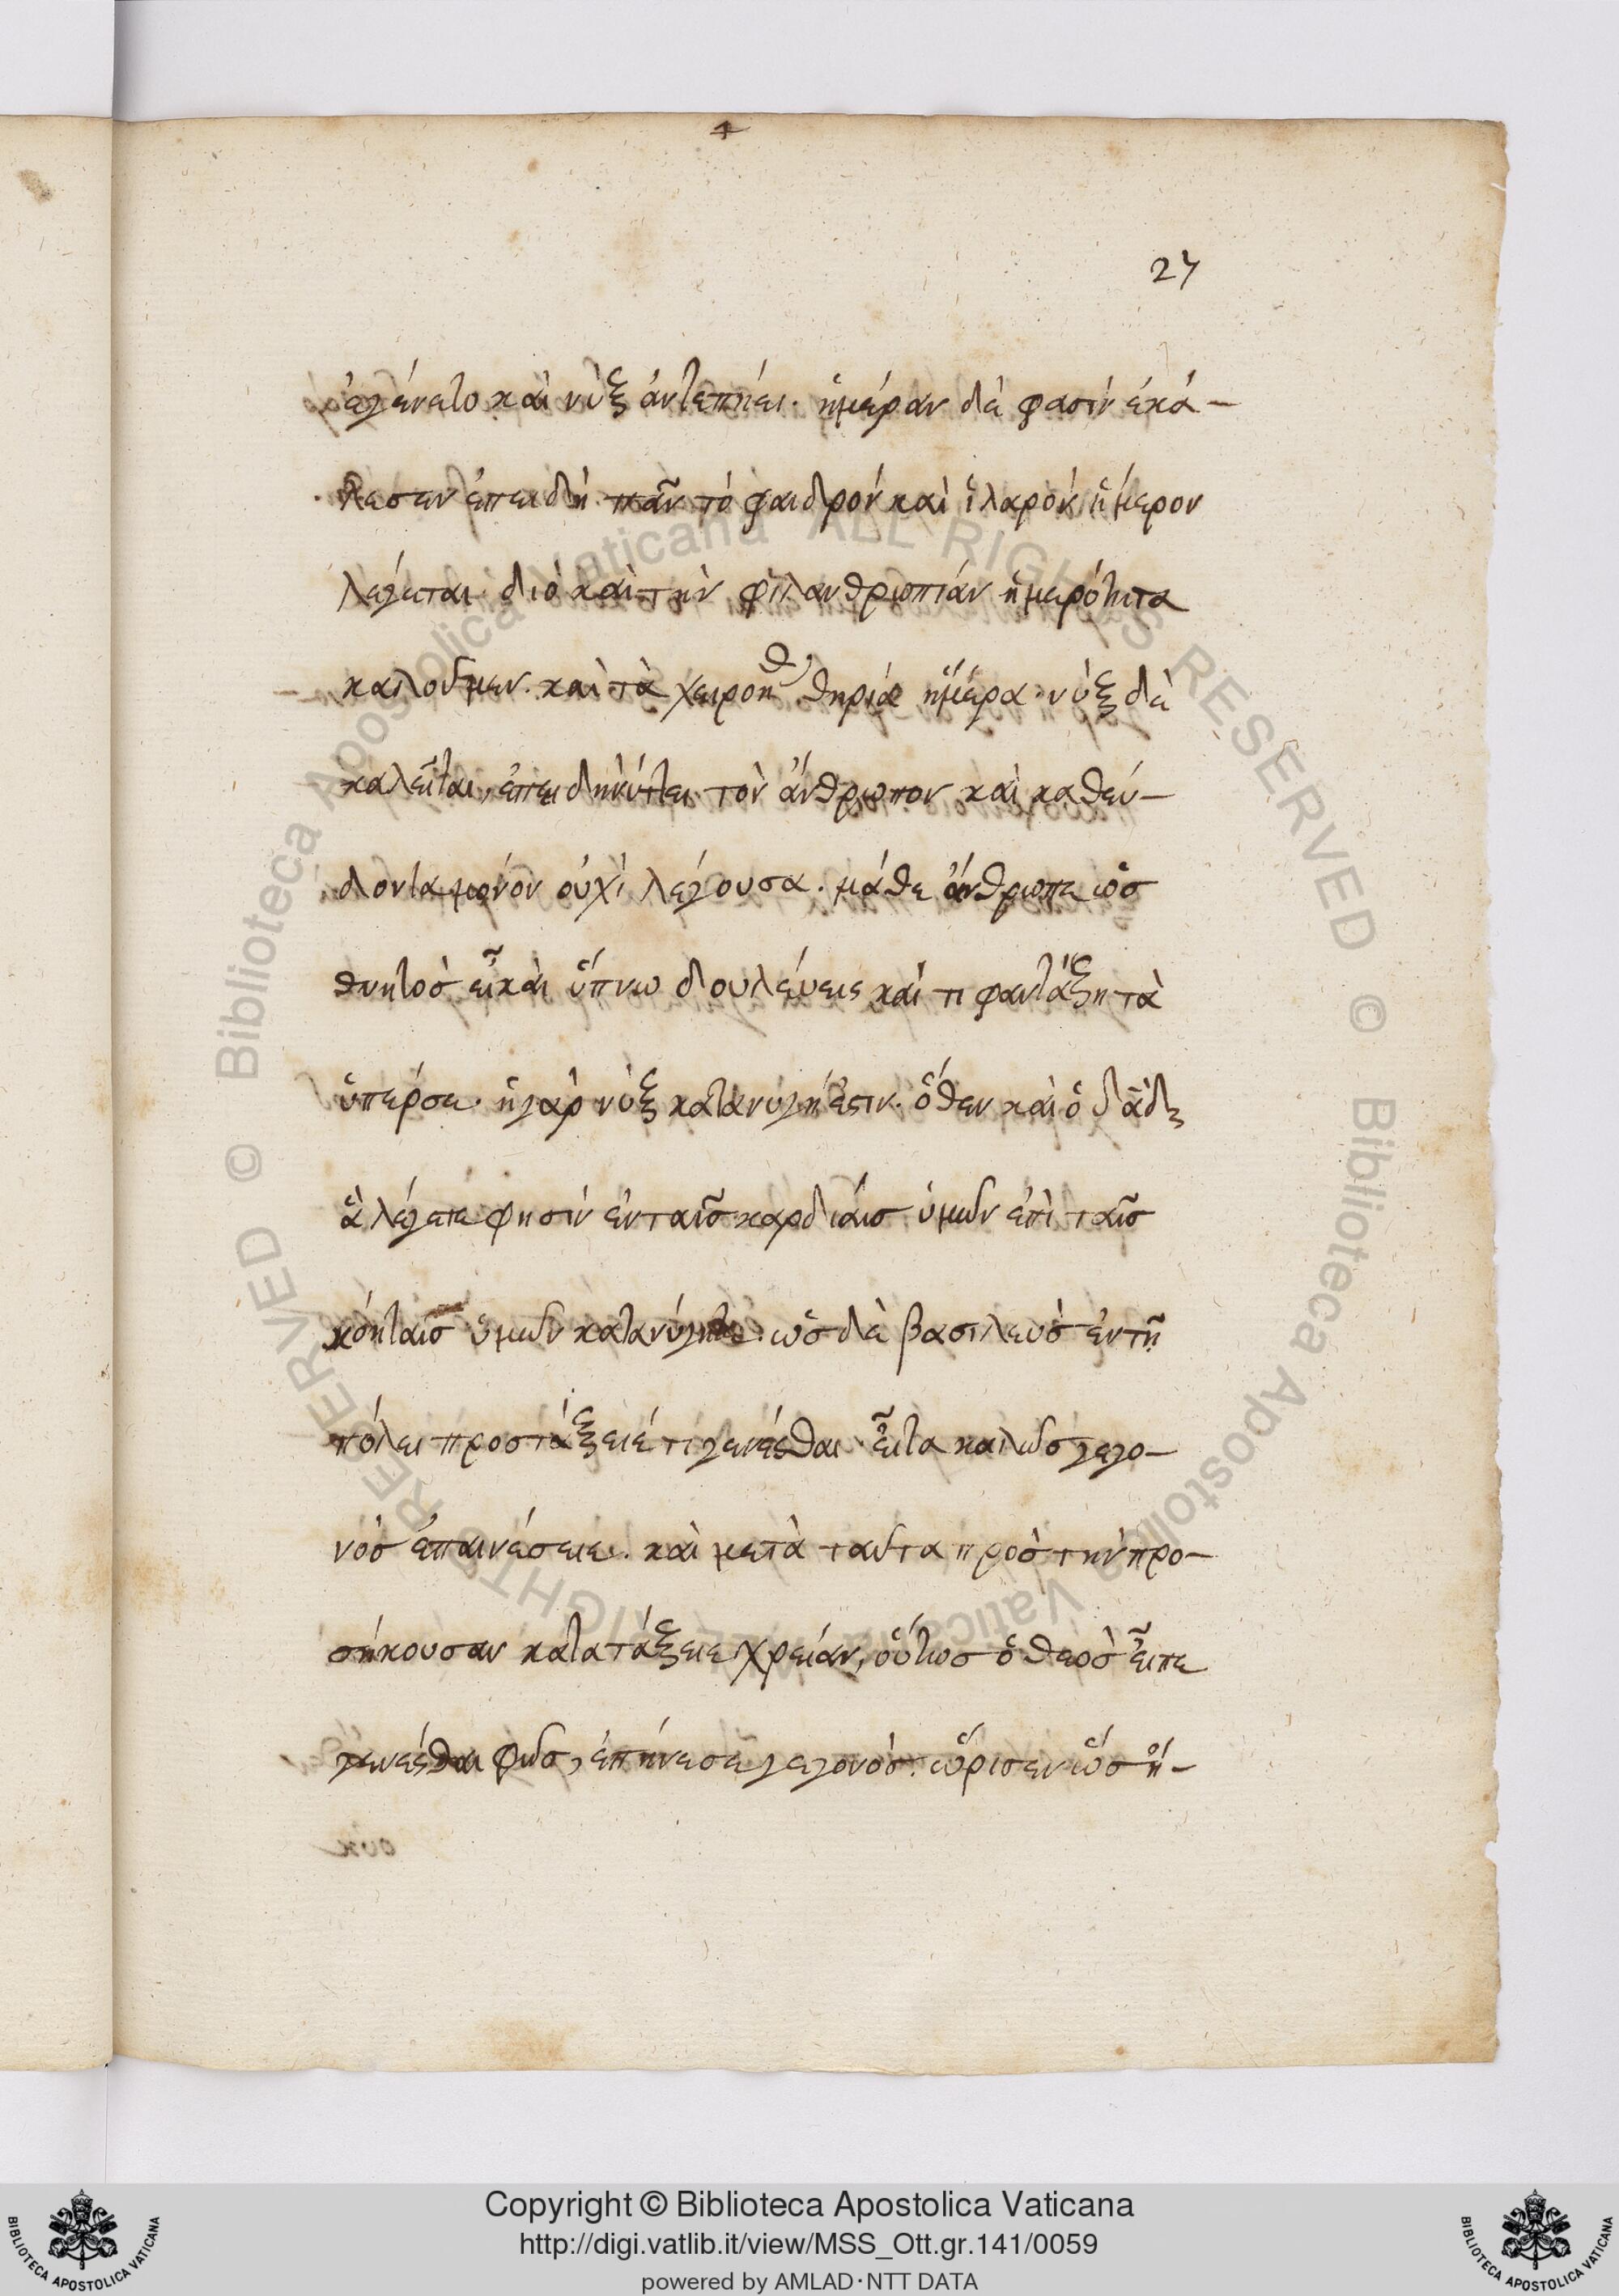 27
ἐγένετο καὶ νὺξ ἀντεπῄει· ἡμέραν δέ φασιν ἐκά-
λεσεν ἐπειδὴ πᾶν τὸ φαιδρὸν καὶ ἱλαρὸν ἥμερον
λέγεται· διὸ καὶ τὴν φιλανθρωπίαν ἡμερότητα
καλοῦμεν· καὶ τὰ χειροήθ θηρία ἥμερα· νὺξ δὲ
καλεῖται, ἐπειδὴ νύττει τὸν ἄνθρωπον καὶ καθεύ-
δοντα μονονουχὶ λέγουσα· μάθε ἄνθρωπε ὡς
θνητὸς εἶ καὶ ὕπνω δουλεύεις καὶ τί φαντάξη τὰ
ὑπέρ σε· ἡ γὰρ νὺξ κατανυγή ἐστιν· ὅθεν καὶ ὁ δᾶδ
ἃ λέγετε φησὶν ἐν ταῖς καρδίαις ὑμῶν ἐπὶ ταῖς
κοίταις ὑμῶν κατανύγητε· ὡς δὲ βασιλεὺς ἐν τῇ
πόλει προστάξειέ τι γενέσθαι· εἶτα καλῶς γεγο-
νὸς ἐπαινέσειε· καὶ μετὰ ταῦτα πρὸς τὴν προ-
σήκουσαν κατατάξειε χρείαν, οὕτως ὁ θεὸς εἶπε
γενέσθαι φῶς, ἐπήνεσε γεγονός· ὥρισεν ὡς ἠ-
Copyright © Biblioteca Apostolica Vaticana
http://digi.vatlib.it/view/MSS_Ott.gr.141/0059
powered by AMLAD·NTT DATA
BIBLIOTECA APOSTOLICA VATICANA
BIBLIOTECA APOSTOLICA VATICANA
© Biblioteca Apostolica Vaticana ALL RIGHTS RESERVED © Biblioteca Apostolica Vaticana ALL RIGHTS RESERVED